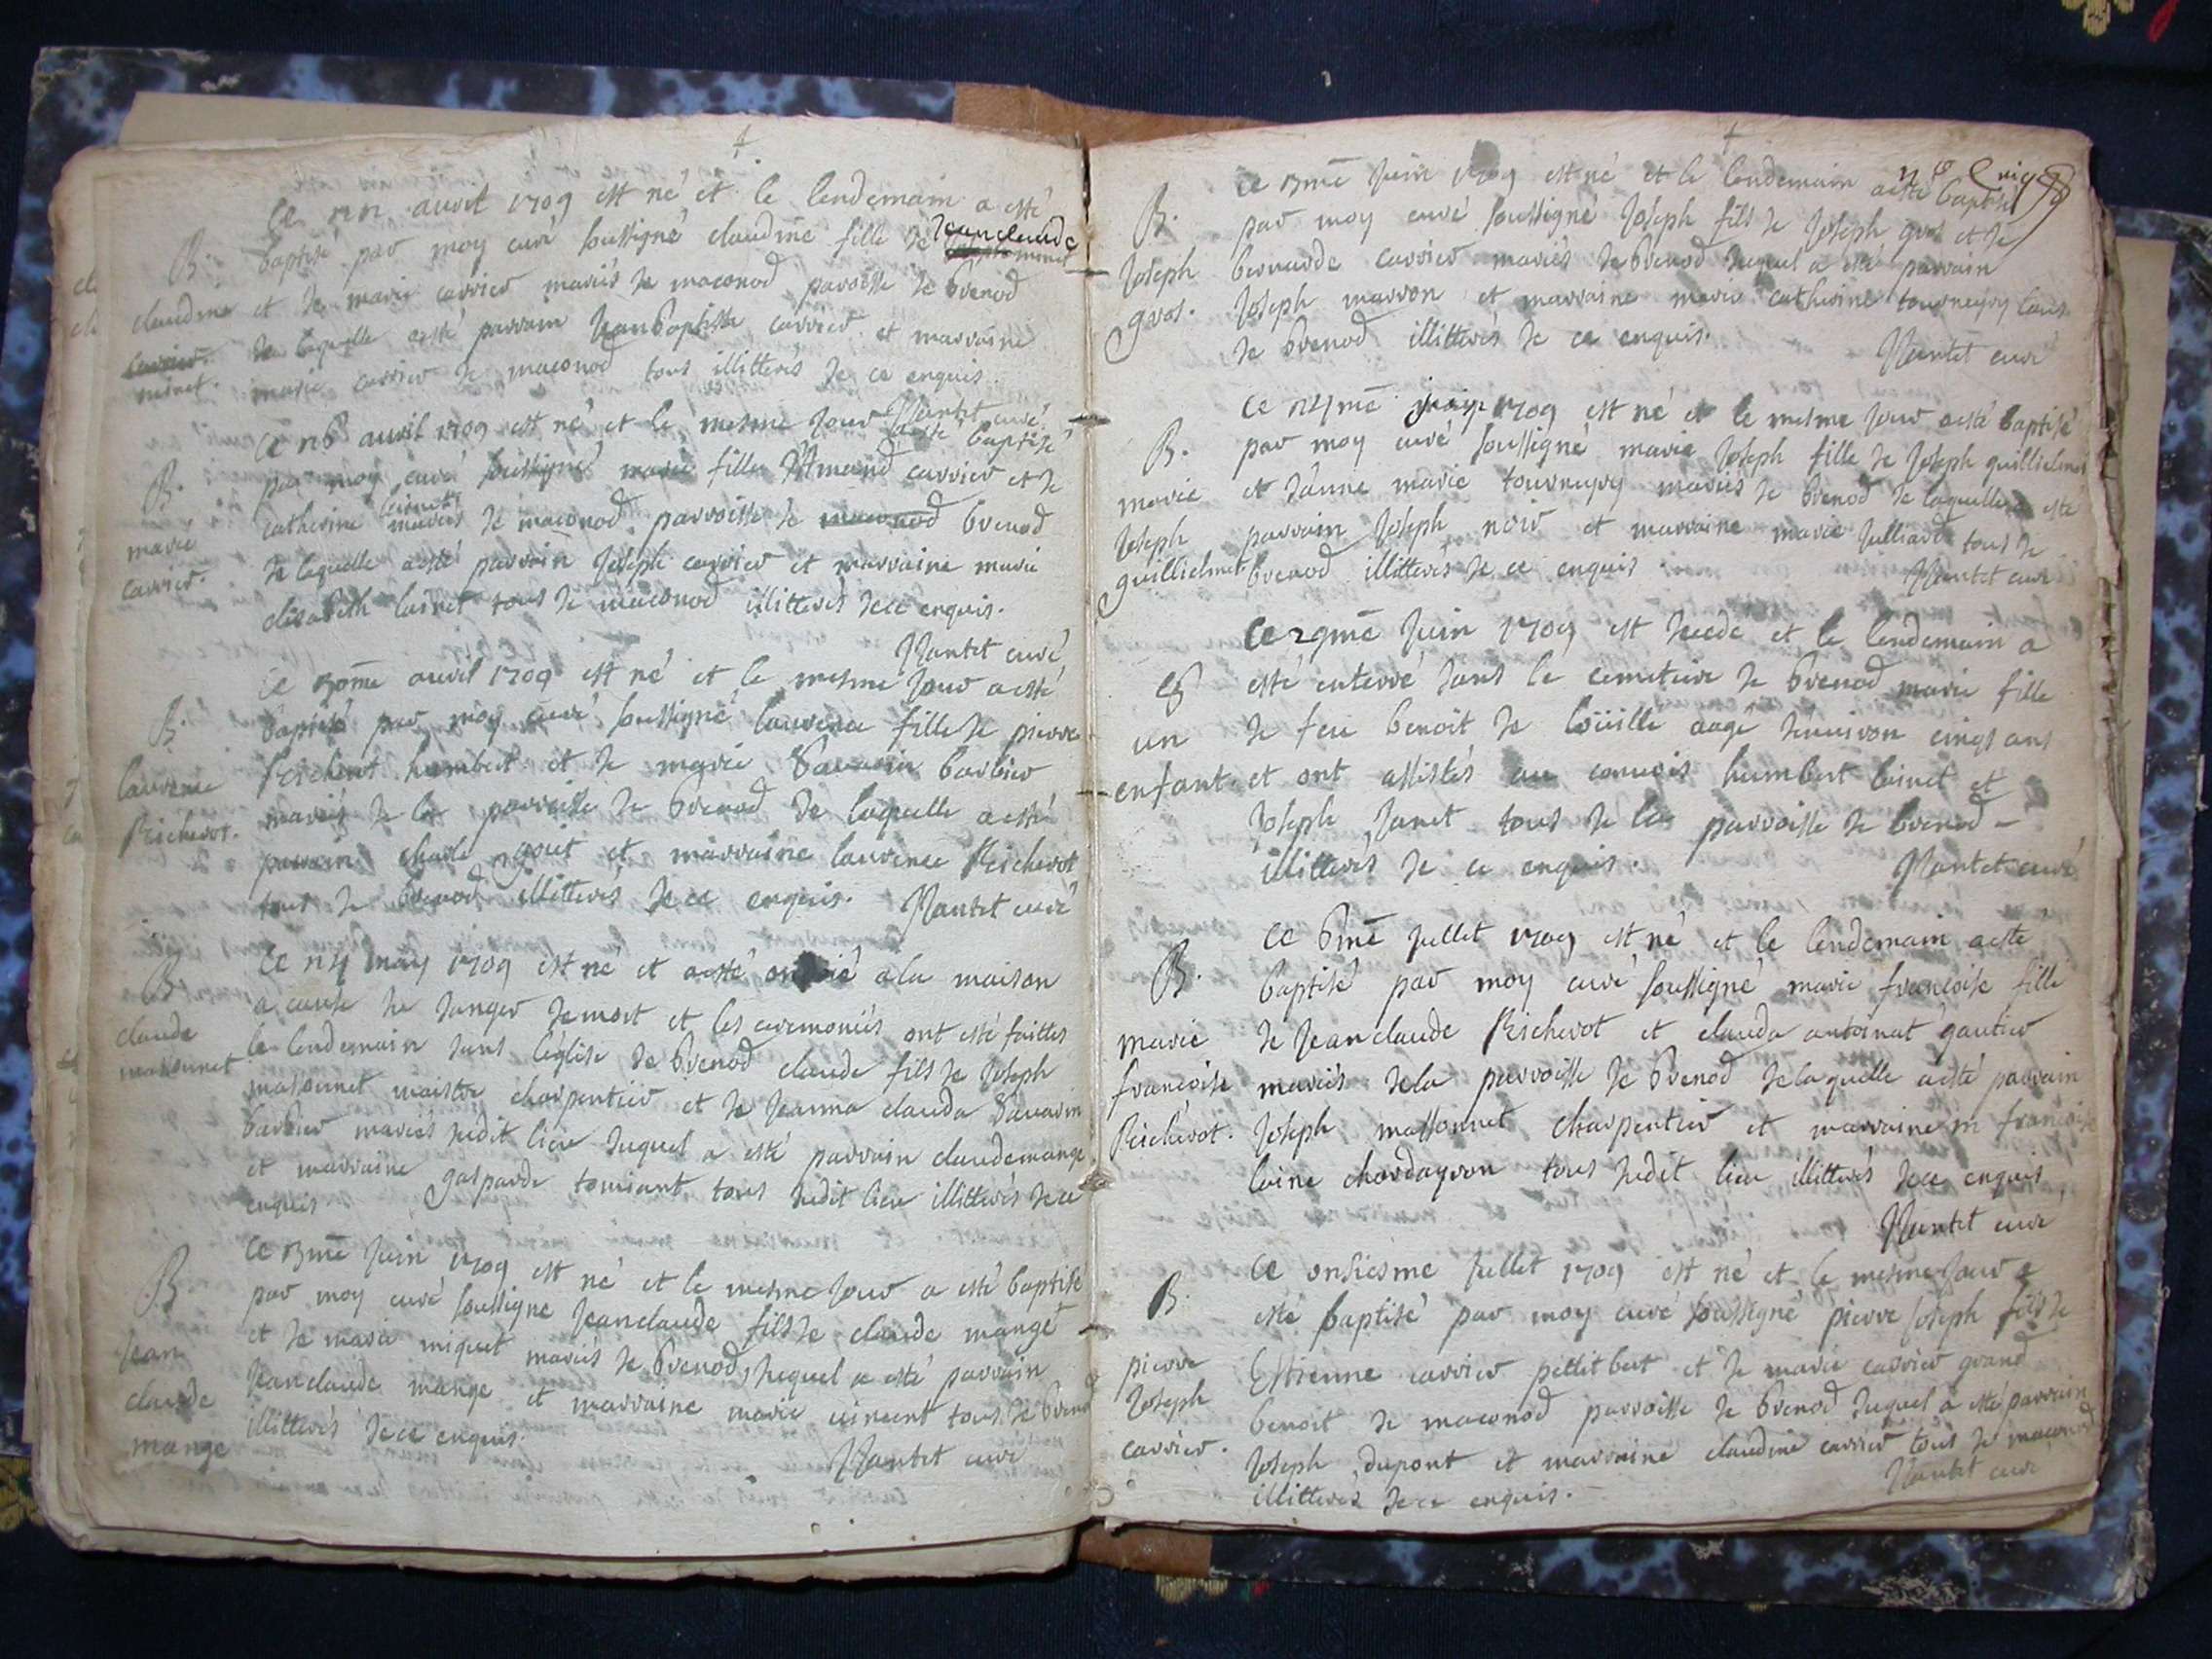 Ce avvil 1709 est né et le lendemain a esté
B. baptisé par moy curé soussigné claudine fille de Jeanclaude
claudine et de marie carrier mariés de maconod parroisse de brenod
carrier de laquelle a esté parrain Jeanbaptiste carrier et marraine
minet. marie carrier de maconod tous illitterés de ce enquis.
Nantet curé
Ce avvil 1709 est né et le mesme jour a esté baptisé
B. par moy curé soussigné marie fille d'Amand carrier et de
catherine loinet mariés de maconod parroisse de maconod brenod
marie de laquelle a esté parrain Joseph carrier et marraine marie
carrier. elisabeth loinet tous de maconod illitterés de ce enquis.
Nantet curé
Ce avvil 1709 est né et le mesme jour a esté
B. baptisé par moy curé soussigné laurence fille de pierre
laurence Reicherot humbert et de marie Savarin barbier
Reicherot. mariés de la parroisse de brenod de laquelle a esté
parrain charle goiet et marraine laurence Reicherot
tous de brenod illitterés de ce enquis. Nantet curé
Ce may 1709 est né et a esté a la maison
B. a cause de danger de mort et les ceremonies ont esté faittes
claude le lendemain dans l'eglise de brenod claude fils de Joseph
massonnet massonnet maistre charpentier et de Jeanne clauda Savarin
barbier mariés dudit lieu duquel a esté parrain claude mange
et marraine gasparde tomiant tous dudit lieu illitterés de ce
enquis
Ce 13me Juin 1709 est né et le mesme jour a esté baptisé
B. par moy curé soussigné Jeanclaude fils de claude mange
Jean et de marie miquet mariés de brenod, duquel a esté parrain
claude Jeanclaude mange et marraine marie vincent tous de brenod
mange illitterés de ce enquis.
Nantet curé
Ce 13me Juin 1709 est né et le lendemain a esté baptisé
B. par moy curé soussigné Joseph fils de Joseph gros et de
Joseph bernarde carrier mariés de brenod duquel a esté parrain
gros. Joseph marron et marraine marie catherine tournupry tous
de brenod illitterés de ce enquis.
Nantet curé
Ce juin 1709 est né et le mesme jour a esté baptisé
B. par moy curé soussigné marie Joseph fille de Joseph guillielmet
marie et d'anne marie tournupry mariés de brenod de laquelle a esté
Joseph parrain Joseph noir et marraine marie Julliard tous de
guillielmet brenod illitterés de ce enquis.
Nantet curé
Ce 29me Juin 1709 est decedé et le lendemain a
esté enterré dans le cemetiere de brenod marie fille
un de feu benoit de loüille aagé denviron cinqs ans
enfant. et ont assistés au convois humbert loinet et
Joseph Janet tous de la parroisse de brenod
illitterés de ce enquis.
Nantet curé
Ce 6me Jullet 1709 est né et le lendemain a esté
B. baptisé par moy curé soussigné marie francoise fille
marie de Jeanclaude Reicherot et clauda antoinat gautier
francoise mariés de la parroisse de brenod de laquelle a esté parrain
Reicherot. Joseph massonnet charpentier et marraine m francoise
loine chardayron tous dudit lieu illitterés de ce enquis
Nantet curé
Ce onsiesme Jullet 1709 est né et le mesme jour a
B. esté baptisé par moy curé soussigné pierre Joseph fils de
pierre Estienne carrier pettitbert et de marie carrier grand
Joseph benoit de maconod parroisse de brenod duquel a esté parrain
carrier. Joseph dupont et marraine claudine carrier tous de maconod
illitterés de ce enquis.
Nantet curé